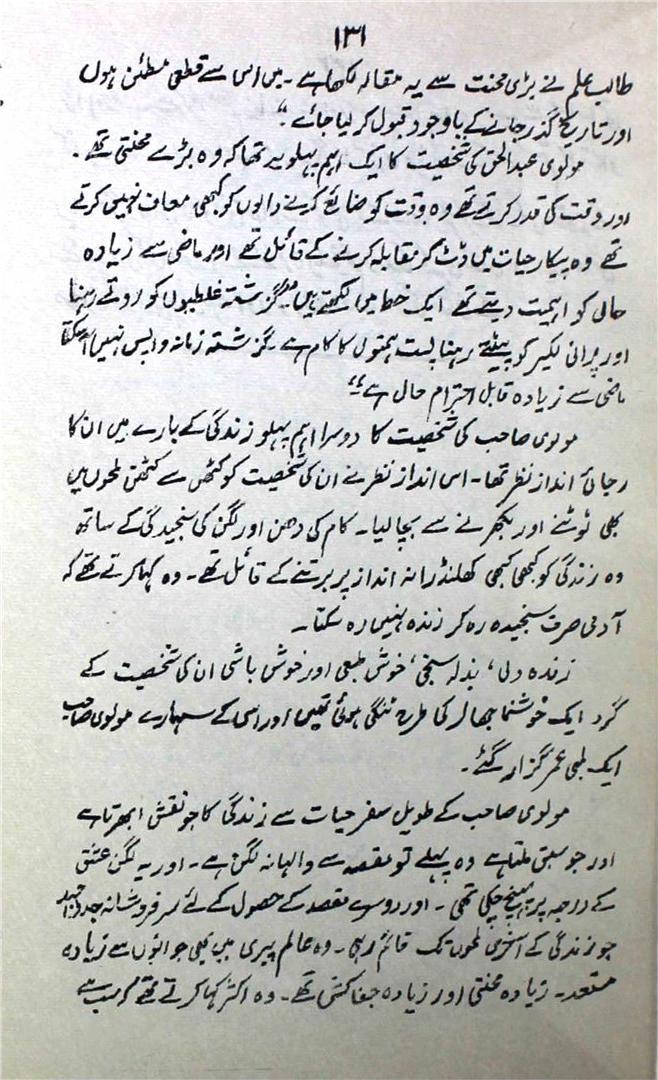 ۱۳۱
طالب علم نے بڑی محنت سے یہ مقالہ لکھا ہے ۔ میں اس سے قطعی مطئن ہوں
اور تاریخ گذر جانے کے باوجود قبول کر لیا جائے ۔“
مولوی عبدالحق کی شخصیت کا ایک اہم پہلو یہ تھا کہ وہ بڑے محنتی تھے ۔
اور وقت کی قدر کرتے تھے وہ وقت کو ضائع کرنے والوں کو کبھی معاف نہیں کرتے
تھے وہ پیکار حیات میں ڈٹ کر مقابلہ کرنے کے قائل تھے اور ماضی سے زیادہ
حال کو اہمیت دیتے تھے ایک خط میں لکھتے ہیں ”گزشتہ غلطیوں کو روتے رہنا
اور پرانی لکیر کو پیٹتے رہنا پست ہمتوں کا کام ہے ۔ گزشتہ زمانہ واپس نہیں آسکتا
ماضی سے زیادہ قابل احترام حال ہے“
مولوی صاحب کی شخصیت کا دوسرا اہم پہلو زندگی کے بارے میں ان کا
رجائی انداز نظر تھا ۔ اس انداز نظر نے ان کی شخصیت کو کٹھن سے کٹھن لمحوں میں
بھی ٹوٹنے اور بکھرنے سے بچا لیا ۔ کام کی دھن اور لگن کی سنجیدگی کے ساتھ
وہ زندگی کو کبھی کبھی کھلنڈرانہ انداز پر برتنے کے قائل تھے ۔ وہ کہا کرتے تھے کہ
آدمی صرف سنجیدہ رہ کر زندہ نہیں رہ سکتا ۔
زندہ دلی ، بذلہ سنجی ، خوش طبعی اور خوش باشی ان کی شخصیت کے
گرد ایک خوشنما جھالر کی طرح ٹنگی ہوئی تھیں اور اسی کے سہارے مولوی صاحب
ایک لمبی عمر گزار گئے ۔
مولوی صاحب کے طویل سفر حیات سے زندگی کا جو نقش ابھرتا ہے
اور جو سبق ملتا ہے وہ پہلے تو مقصد سے والہانہ لگن ہے ۔ اور یہ لگن عشق
کے درجہ پر پہنچ چکی تھی ۔ اور دوسرے مقصد کے حصول کے لئے سرفروشانہ جدوجہد
جو زندگی کے آخری لمحوں تک قائم رہی ۔ وہ عالم پیری میں بھی جوانوں سے زیادہ
مستعد ۔ زیادہ محنتی اور زیادہ جفا کش تھے ۔ وہ اکثر کہا کرتے تھے کہ سب سے